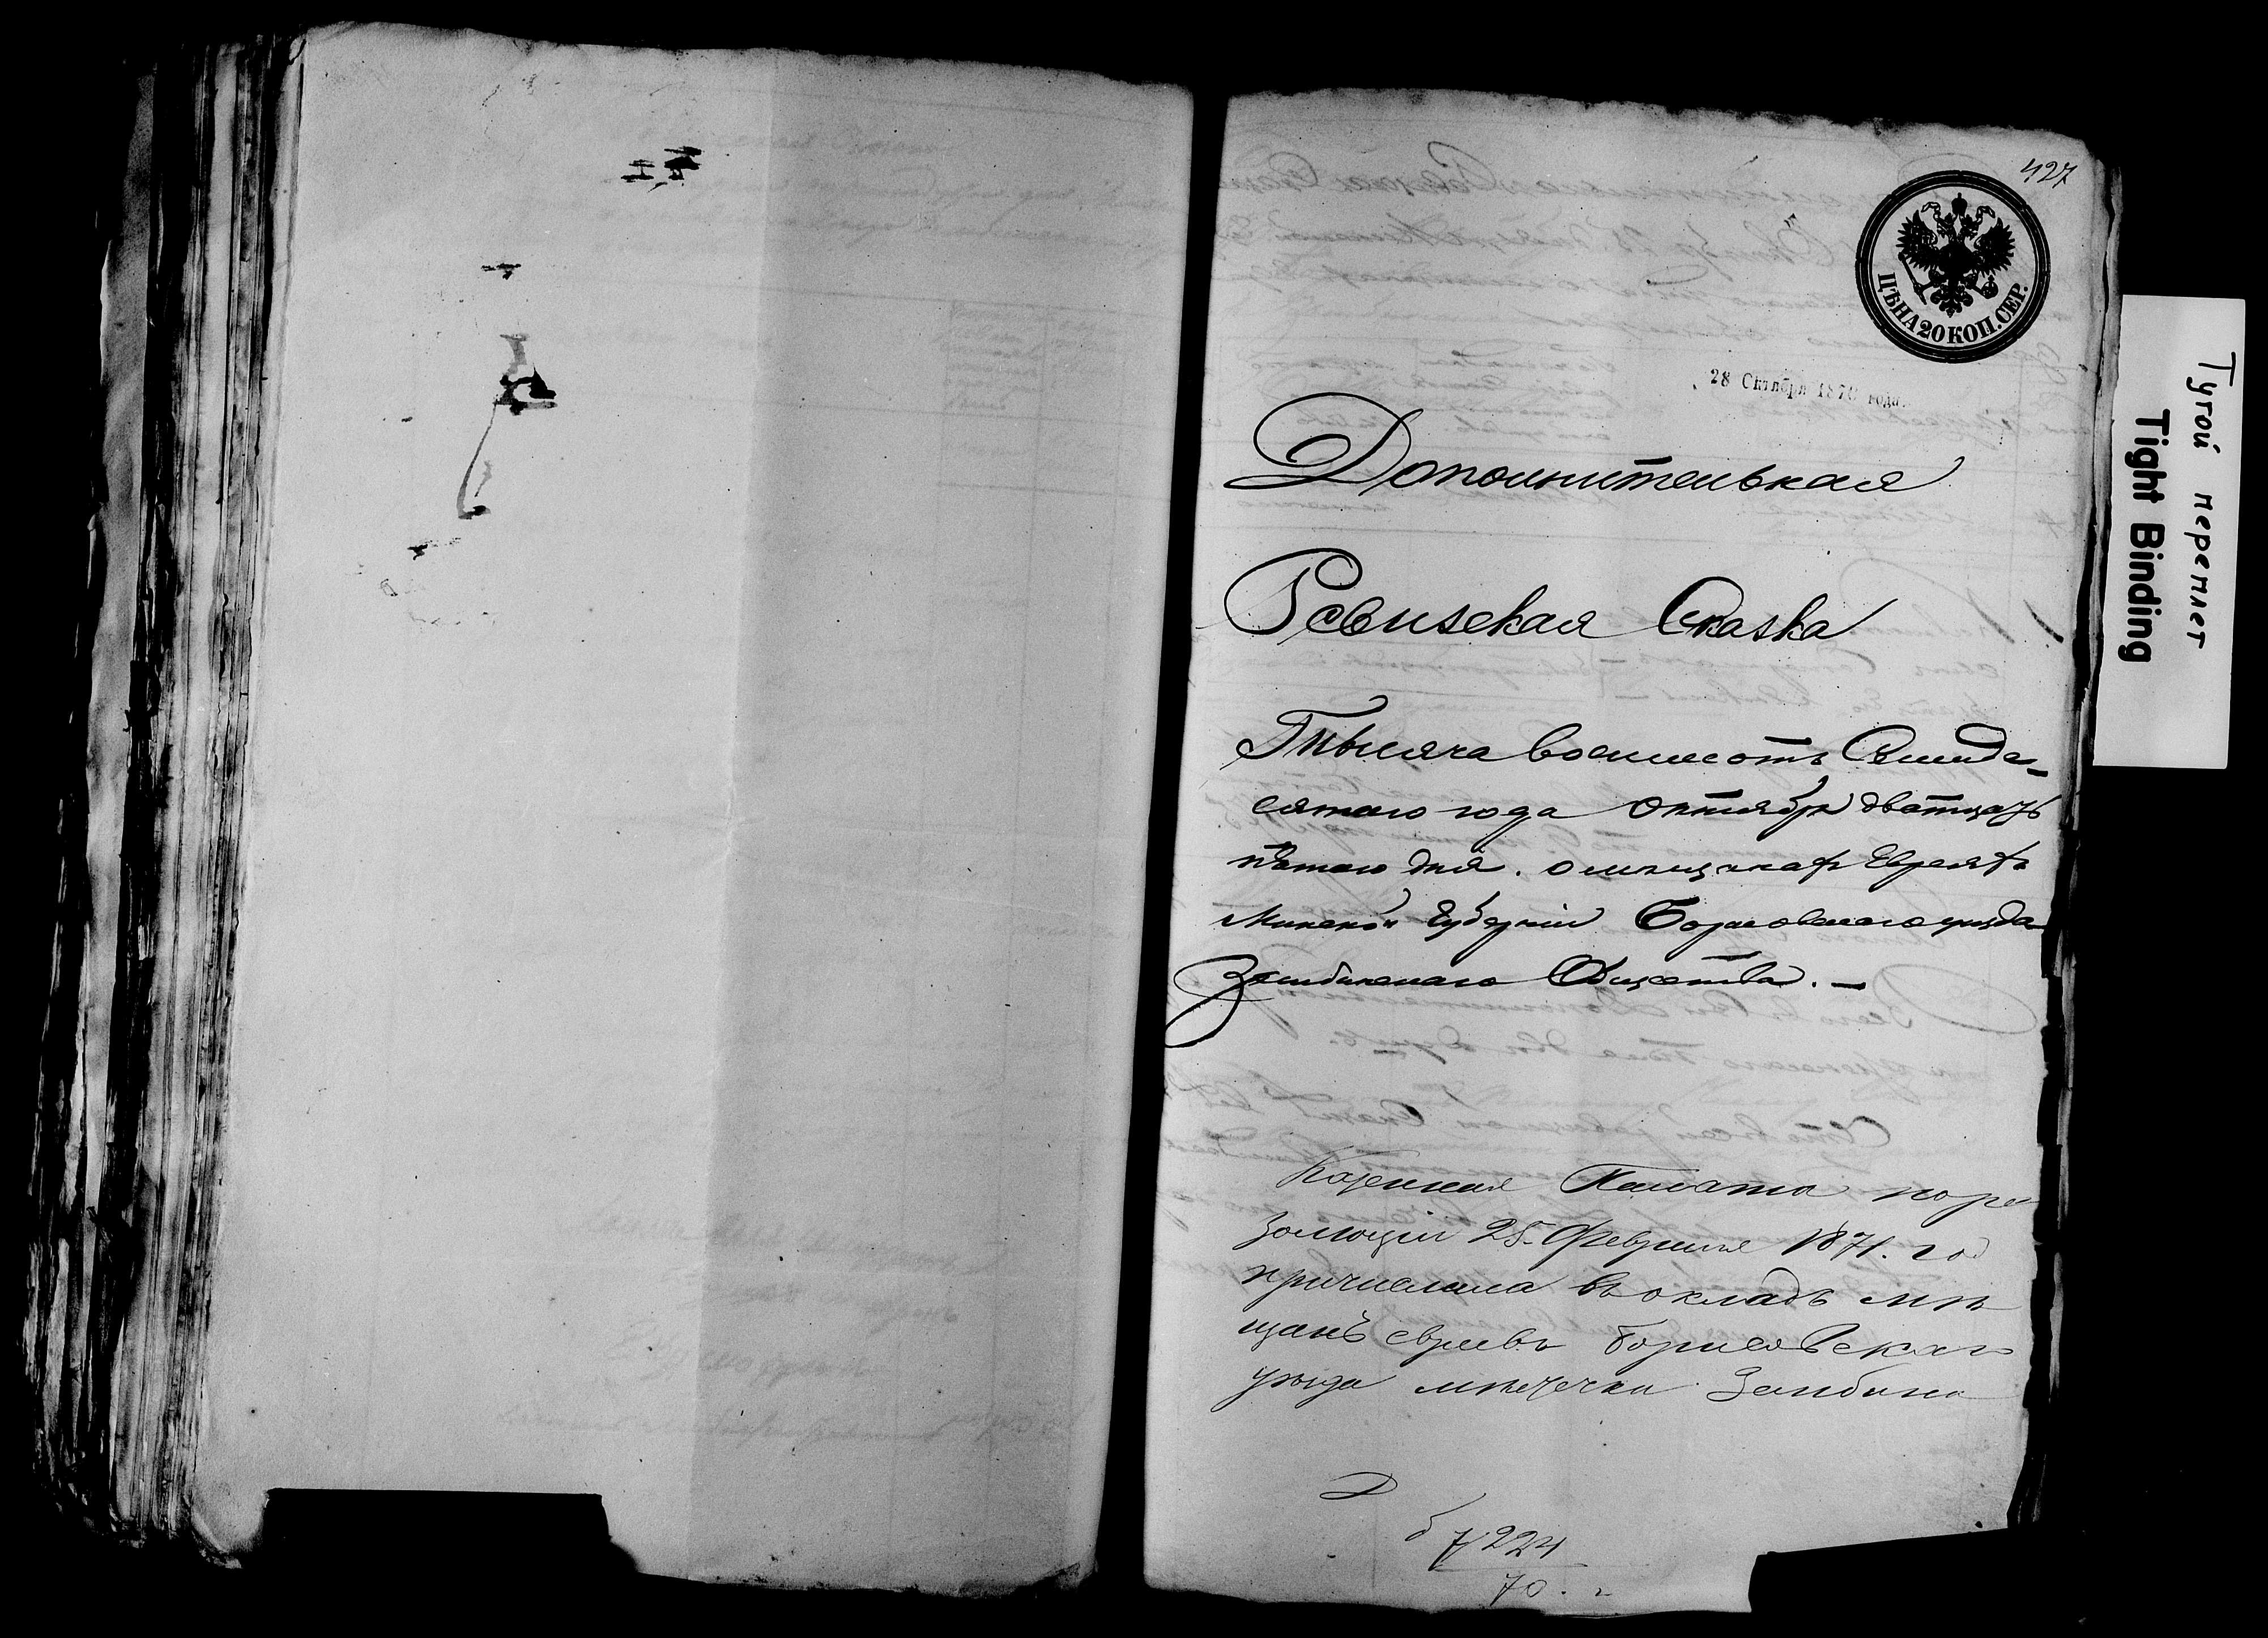 427
ЦѢНА 20 КОП. СЕР.
28 Октября 1870 года.
Дополнительная
Ревизская Сказка
Тысяча восемьсотъ Семиде-
сятаго года Октября дватцать
пятаго дня. о мѣщанахъ Евреяхъ
Минской Губерніи Борисовскаго уезда
Зембинскаго Общества. —
Казенная Палата по ре
золюціи 25 Февраля 1871. год
причислила въ окладъ мѣ
щанъ евреевъ Борисовскаго
уѣзда мѣстечка Зембина
Д
7224
70. г
Тугой переплет
Tight Binding